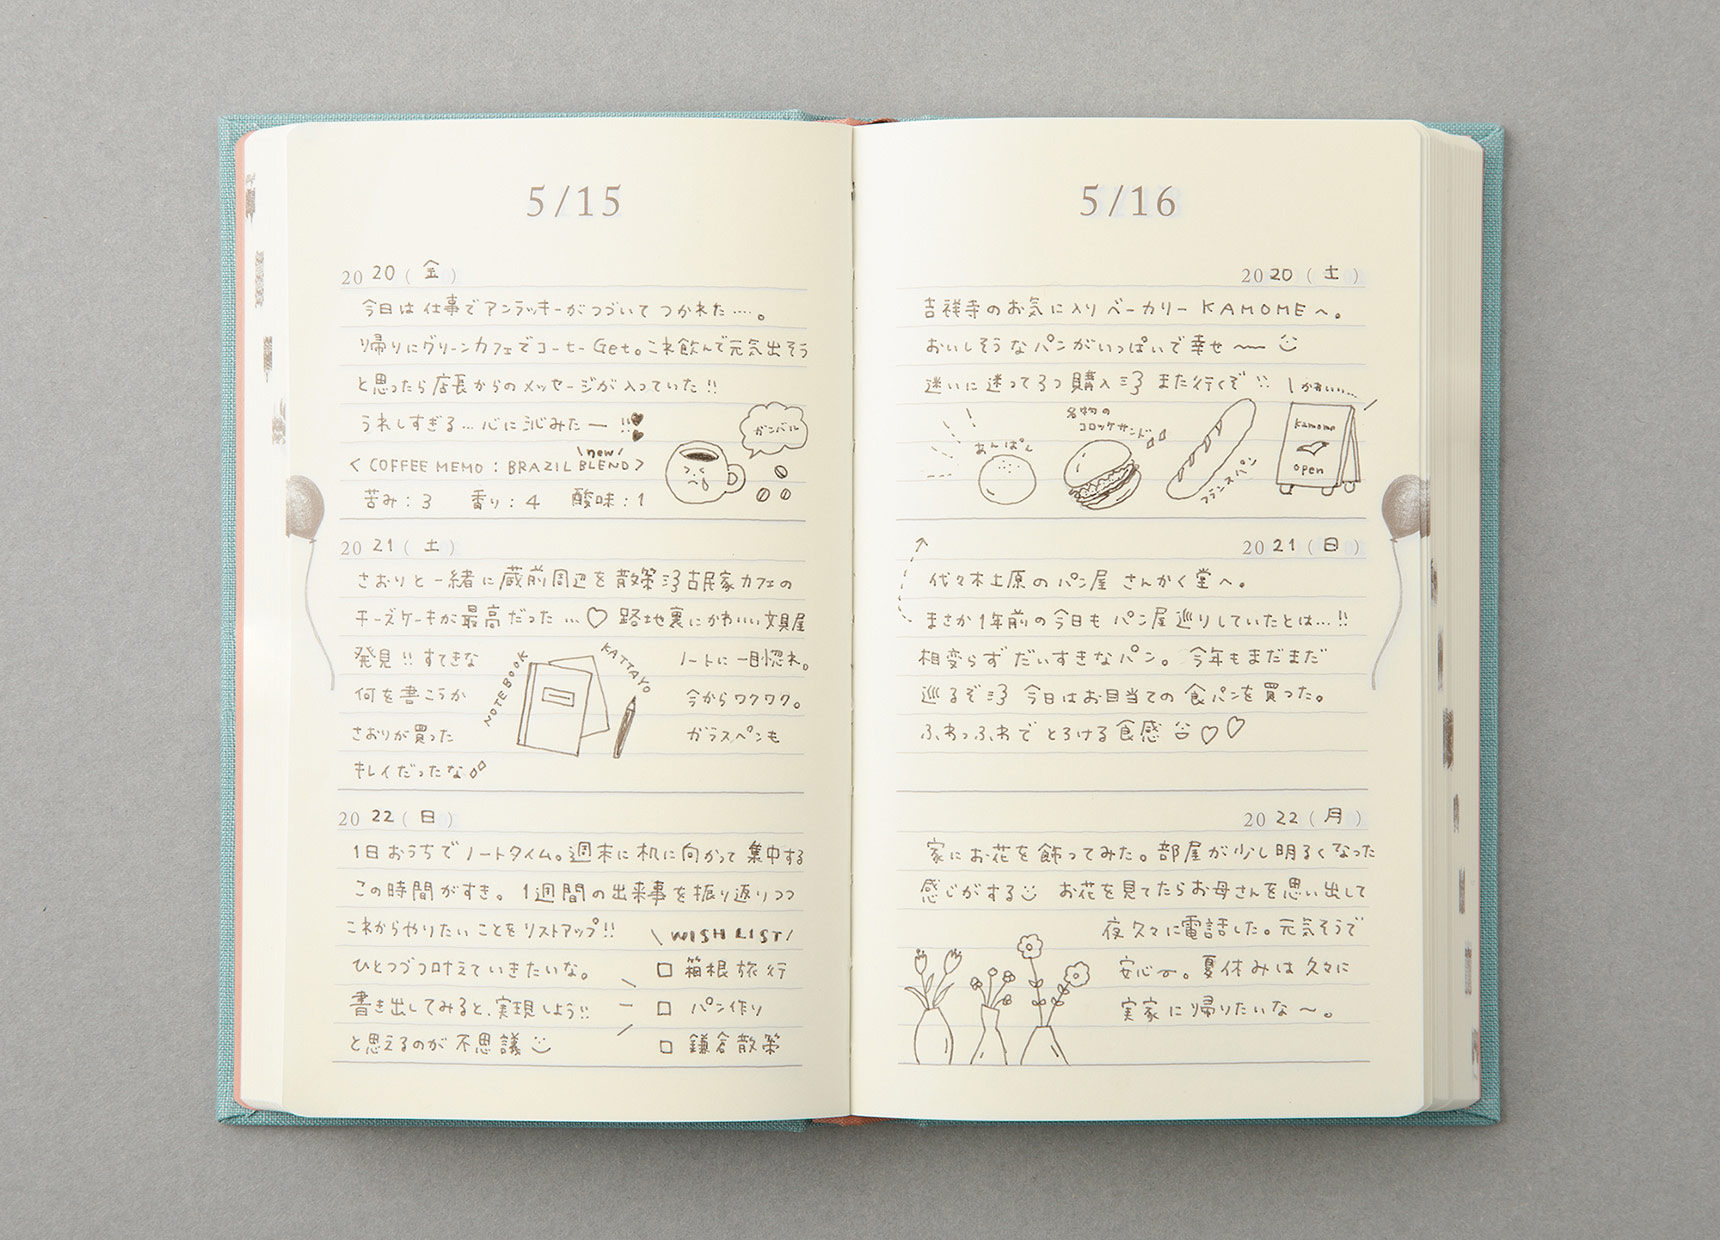 5/15
2020(金)
今日は仕事でアンラッキーがつづいてつかれた....。
帰りにグリーンカフェでコーヒーGet。これ飲んで元気出そう
と思ったら店長からのメッセージが入っていた!!
うれしすぎる…心に沁みたー!!
ガンバル
\new/
<COFFEE MEMO:BRAZIL BLEND>
苦み:3 香り:4 酸味:1
2021(土)
さおりと一緒に蔵前周辺を散策 古民家カフェの
チーズケーキが最高だった…♡ 路地裏にかわいい文具屋
発見!! すてきな ノートに一目惚れ。
何を書こうか 今からワクワク。
さおりが買った ガラスペンも
キレイだったな
NOTEBOOK
KATTAYO
2022(日)
1日おうちでノートタイム。週末に机に向かって集中する
この時間がすき。1週間の出来事を振り返りつつ
これからやりたいことをリストアップ!!
ひとつづつ叶えていきたいな。
書き出してみると、実現しよう!!
と思えるのが不思議
\WISH LIST/
□ 箱根旅行
□ パン作り
□ 鎌倉散策
5/16
2020(土)
吉祥寺のお気に入りベーカリーKAMOMEへ。
おいしそうなパンがいっぱいで幸せ〜
迷いに迷って3つ購入 また行くぞ!!
\かわいい...
あんぱん
名物の
コロッケサンド
フランスパン
Kamome
open
2021(日)
代々木上原のパン屋さんかく堂へ。
まさか1年前の今日もパン屋巡りしていたとは…!!
相変らずだいすきなパン。今年もまだまだ
巡るぞ 今日はお目当ての食パンを買った。
ふわっふわでとろける食感 ♡♡
2022(月)
家にお花を飾ってみた。部屋が少し明るくなった
感じがする お花を見てたらお母さんを思い出して
夜久々に電話した。元気そうで
安心。夏休みは久々に
実家に帰りたいな〜。